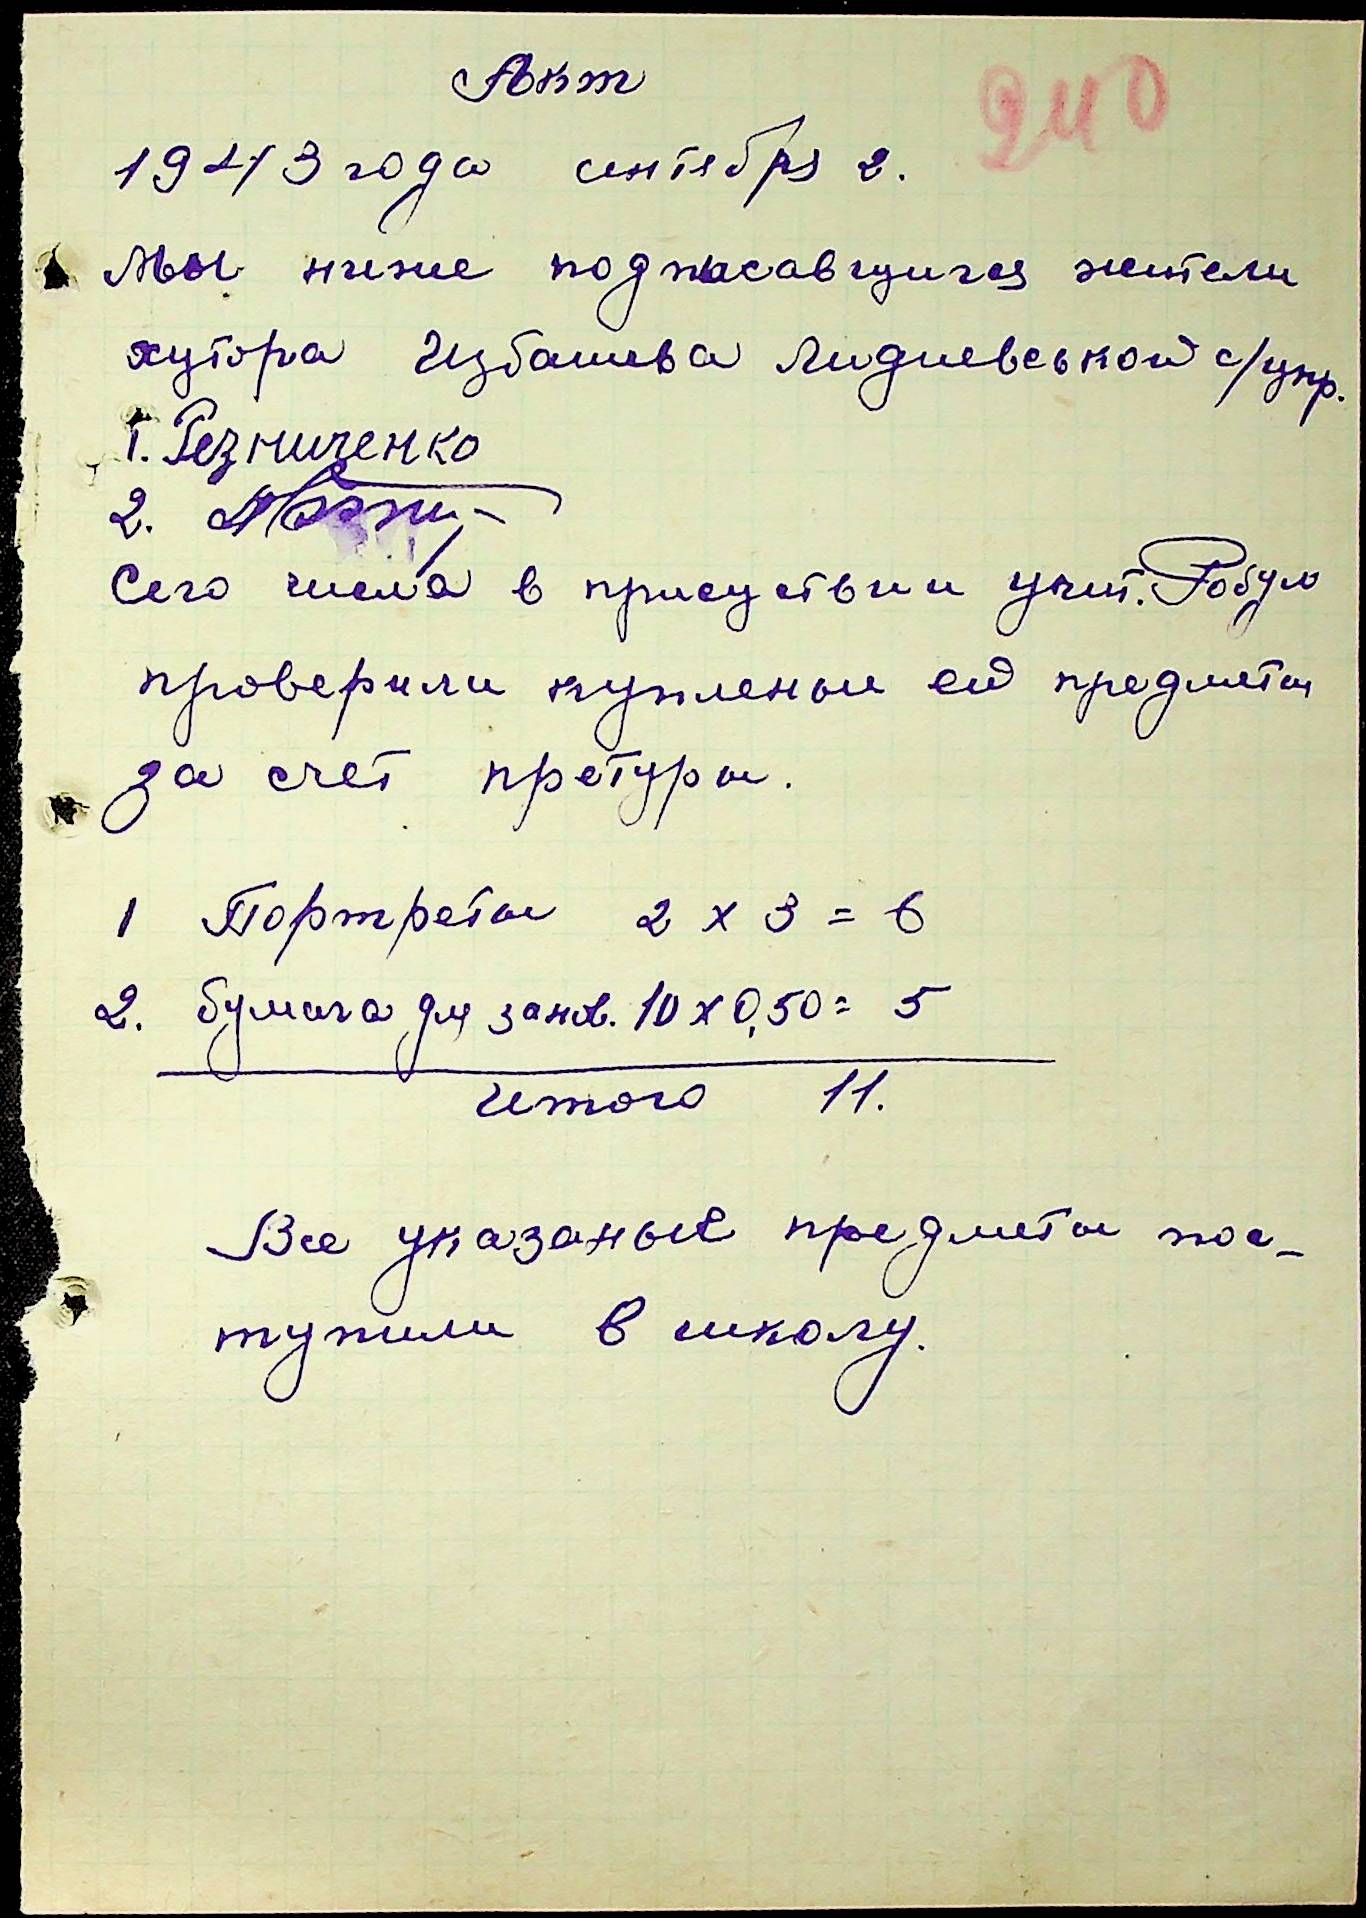 Акт
240
1943 года сентября 2.
Мы ниже подписавщиися жители
хутора Избашева Лидиевськой с/упр.
1. Резниченко
2.
Сего числа в присуствии учит. Робул
проверили купленые ей предметы
за счет претуры.
1 Портреты 2 х 3 = 6
2. бумага для занав. 10 х 0,50 = 5
Итого 11.
Все указаные предметы пос-
тупили в школу.